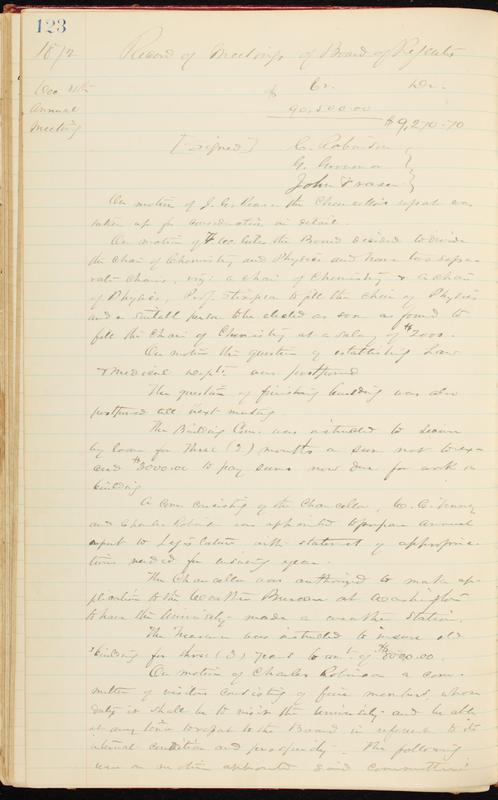 123
1872 Record of Meetings of Board of Regents
Dec 11th
Annual
Meeting
$ Cr. Dr.
90,500.00
$9,270.70
[Signed] C. Robinson
John Fraser
On motion of J. G. the Chancellor's report was
taken up for consideration in detail.
On motion of the Board decided to divide
the Chair of Chemistry and Physics and have two sepa-
rate Chairs, viz: a Chair of Chemistry & a Chair
of Physics, Prof. to fill the Chair of Physics
and a suitable person to be elected as soon as found to
fill the Chair of Chemistry at a salary of $2000.
On motion the question of establishing Law
& Medical Depts was postponed
The question of finishing building was also
postponed till next meeting
The Building Com. was instructed to secure
by loan for three (3) months a sum not to ex-
ceed $3000.00 to pay sums now due for work on
building
A com consisting of the Chancellor,
and Charles Robinson was appointed to prepare annual
report to Legislature with statement of appropria-
tions needed for ensuing year.
The Chancellor was authorized to make ap-
plication to the Weather Bureau at Washington
to have the University made a weather station.
The Treasurer was instructed to insure old
building for three (3) years to amt of
On motion of Charles Robinson a com-
mittee of visitors consisting of five members, whose
duty it shall be to visit the University and be able
at any time to report to the Board in reference to its
internal condition and prosperity. The following
was on motion appointed said committee